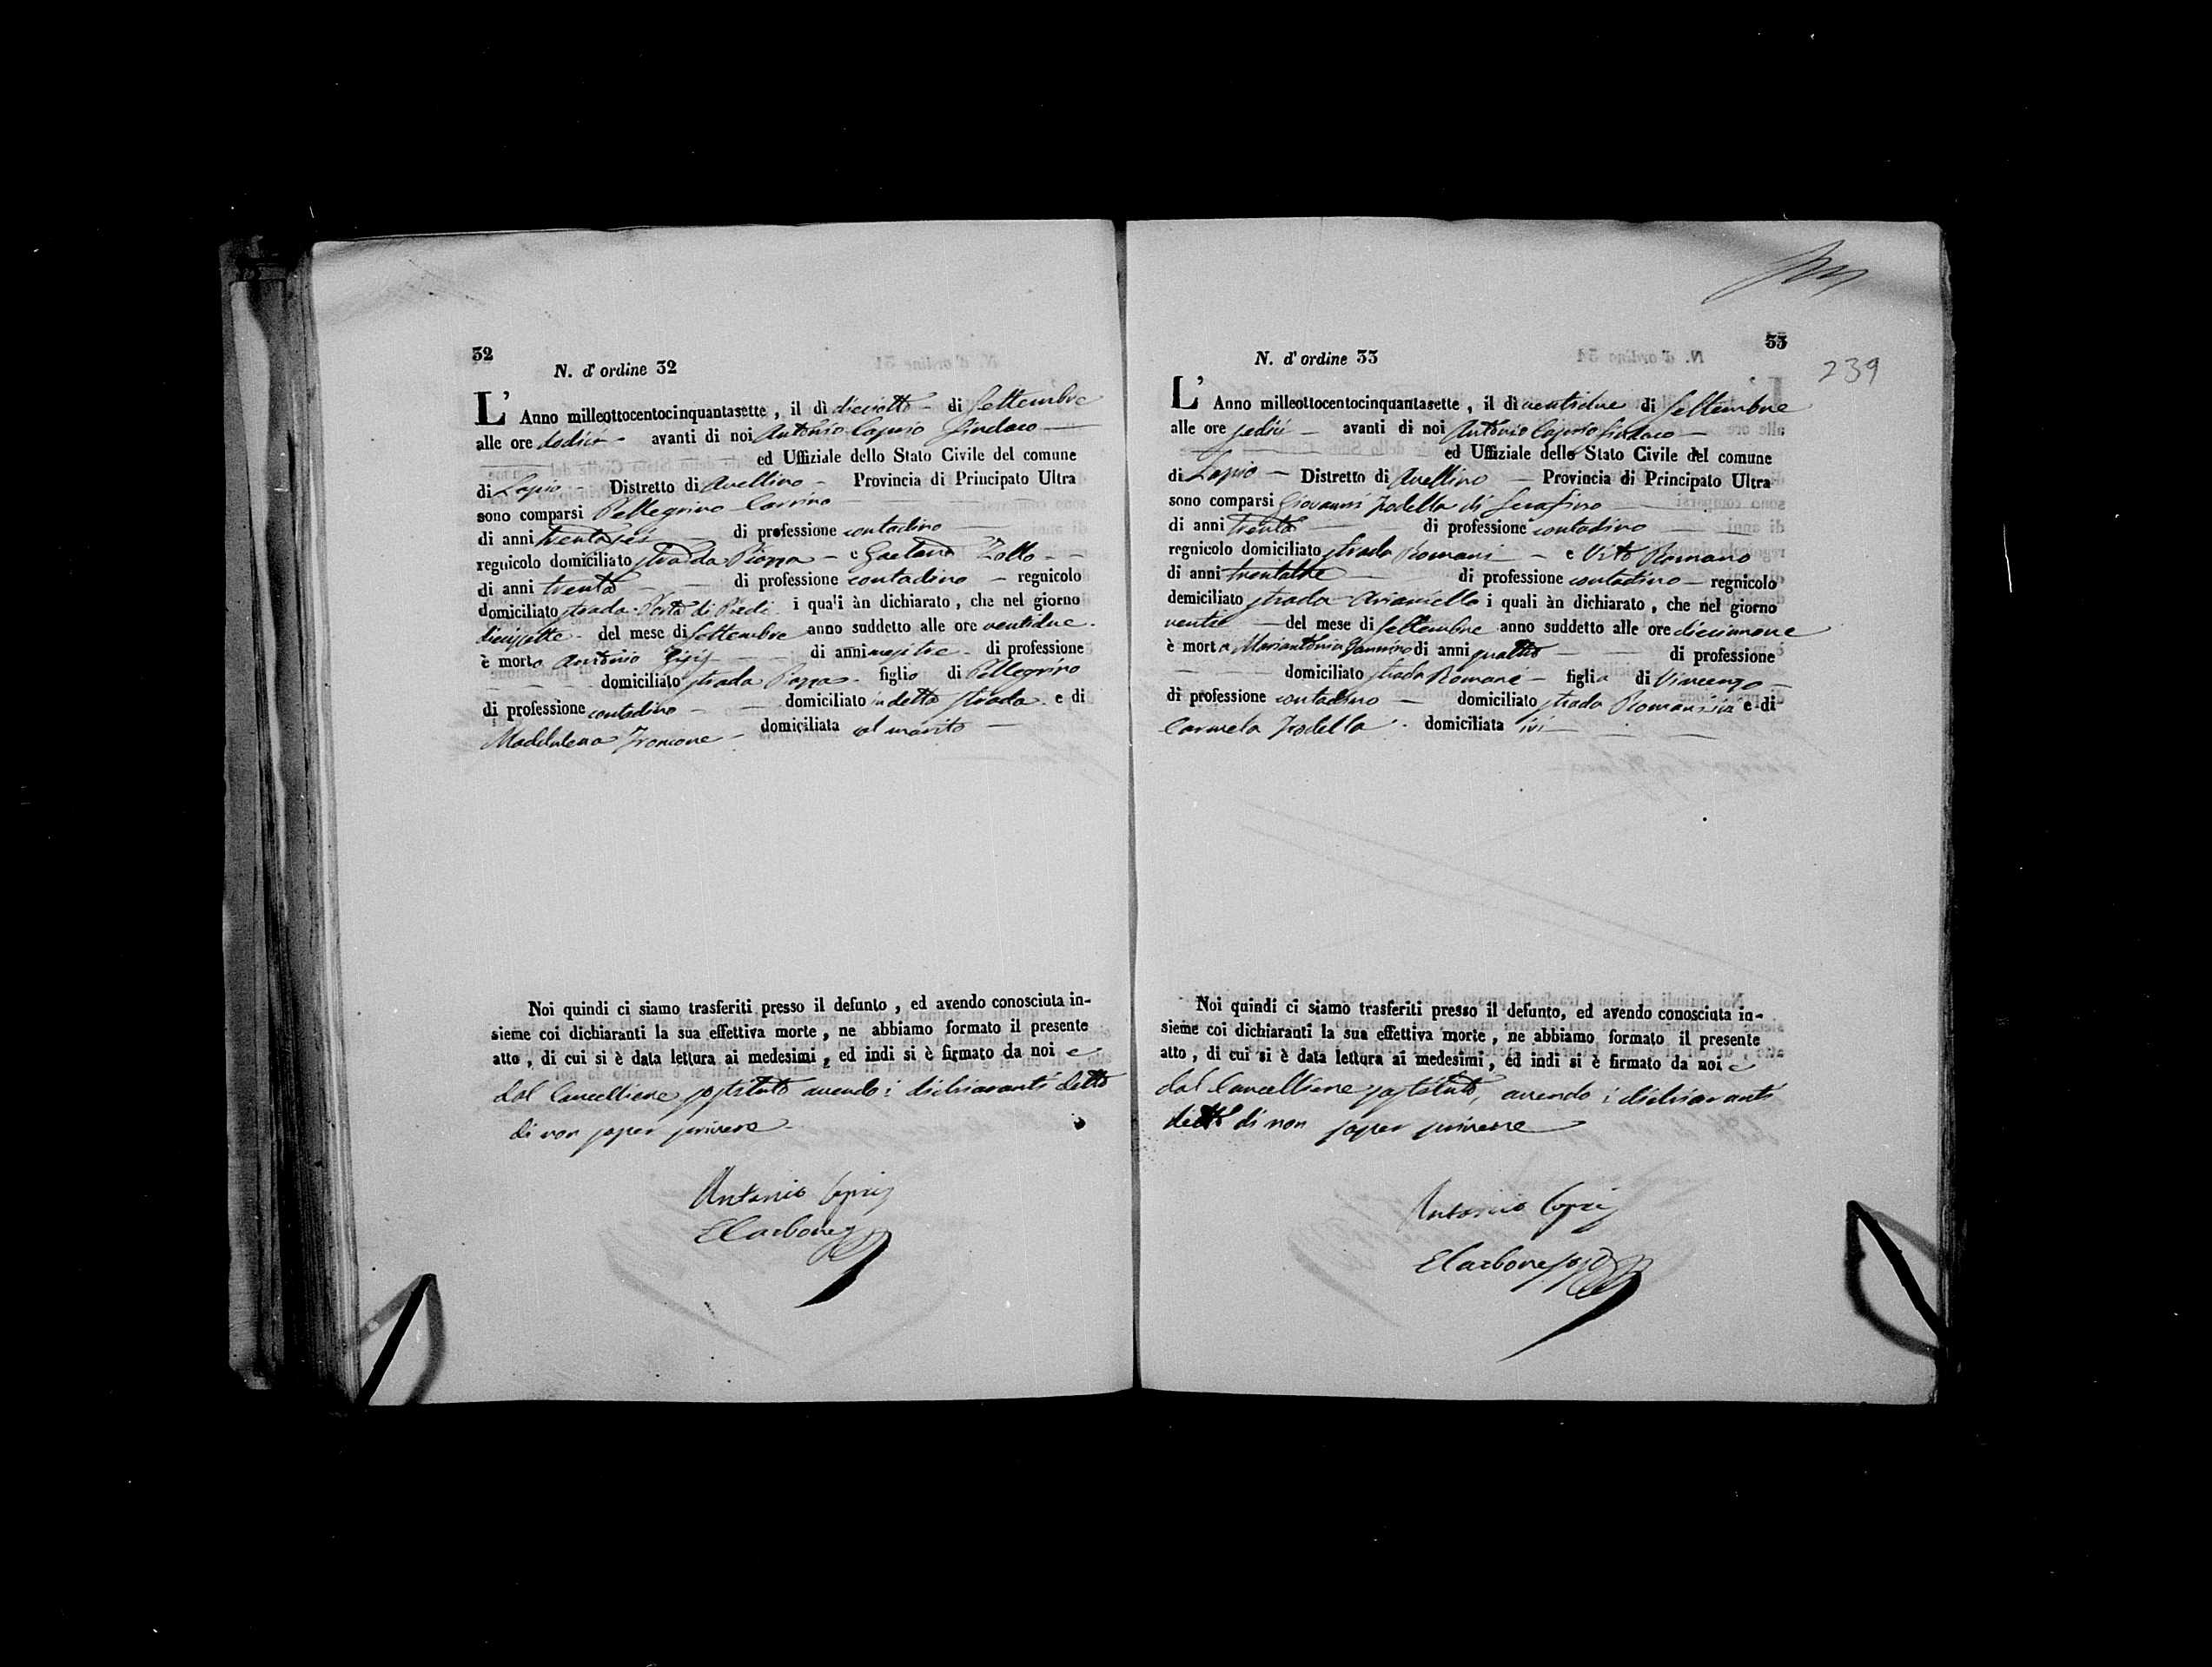 32
N. d' ordine 32
L' Anno milleottocentocinquantasette , il dì dieciotto di Settembre
alle ore dodici avanti di noi Antonio Caprio Sindaco
ed Uffiziale dello Stato Civile del comune
di Lapio Distretto di Avellino Provincia di Principato Ultra
sono comparsi Pellegrino Carrino
di anni trentasei di professione contadino
regnicolo domiciliato strada Piazza e Gaetano Zollo
di anni trenta di professione contadino regnicolo
domiciliato strada Porta di Piedi i quali àn dichiarato , che nel giorno
diecisette del mese di Settembre anno suddetto alle ore ventidue
è morto Antonio di anni mesi tre di professione
domiciliato strada Piazza figlio di Pellegrino
di professione contadino domiciliato in detta strada e di
Maddalena Troncone domiciliata col marito
Noi quindi ci siamo trasferiti presso il defunto , ed avendo conosciuta in-
sieme coi dichiaranti la sua effettiva morte , ne abbiamo formato il presente
atto , di cui si è data lettura ai medesimi , ed indi si è firmato da noi e
dal Cancelliere sostituto avendo i dichiaranti detto
di non saper scrivere
Antonio Caprio
E Carbone
33
239
N. d' ordine 33
L' Anno milleottocentocinquantasette , il dì ventidue di Settembre
alle ore sedici avanti di noi Antonio Caprio Sindaco
ed Uffiziale dello Stato Civile del comune
di Lapio Distretto di Avellino Provincia di Principato Ultra
sono comparsi Giovanni Jodella di Serafino
di anni trenta di professione contadino
regnicolo domiciliato strada Romani e Vito Romano
di anni trentatre di professione contadino regnicolo
domiciliato strada Arianiello i quali àn dichiarato , che nel giorno
del mese di Settembre anno suddetto alle ore diecinnove
è morta Mariantonia di anni quattro di professione
domiciliato strada Romani figlia di Vincenzo
di professione contadino domiciliato strada Romani e di
Carmela Jodella domiciliata ivi
Noi quindi ci siamo trasferiti presso il defunto, ed avendo conosciuta in-
sieme coi dichiaranti la sua effettiva morte , ne abbiamo formato il presente
atto , di cui si è data lettura ai medesimi , ed indi si è firmato da noi e
dal Cancelliere sostituto, avendo i dichiaranti
detto di non saper scrivere
Antonio Caprio
E Carbone